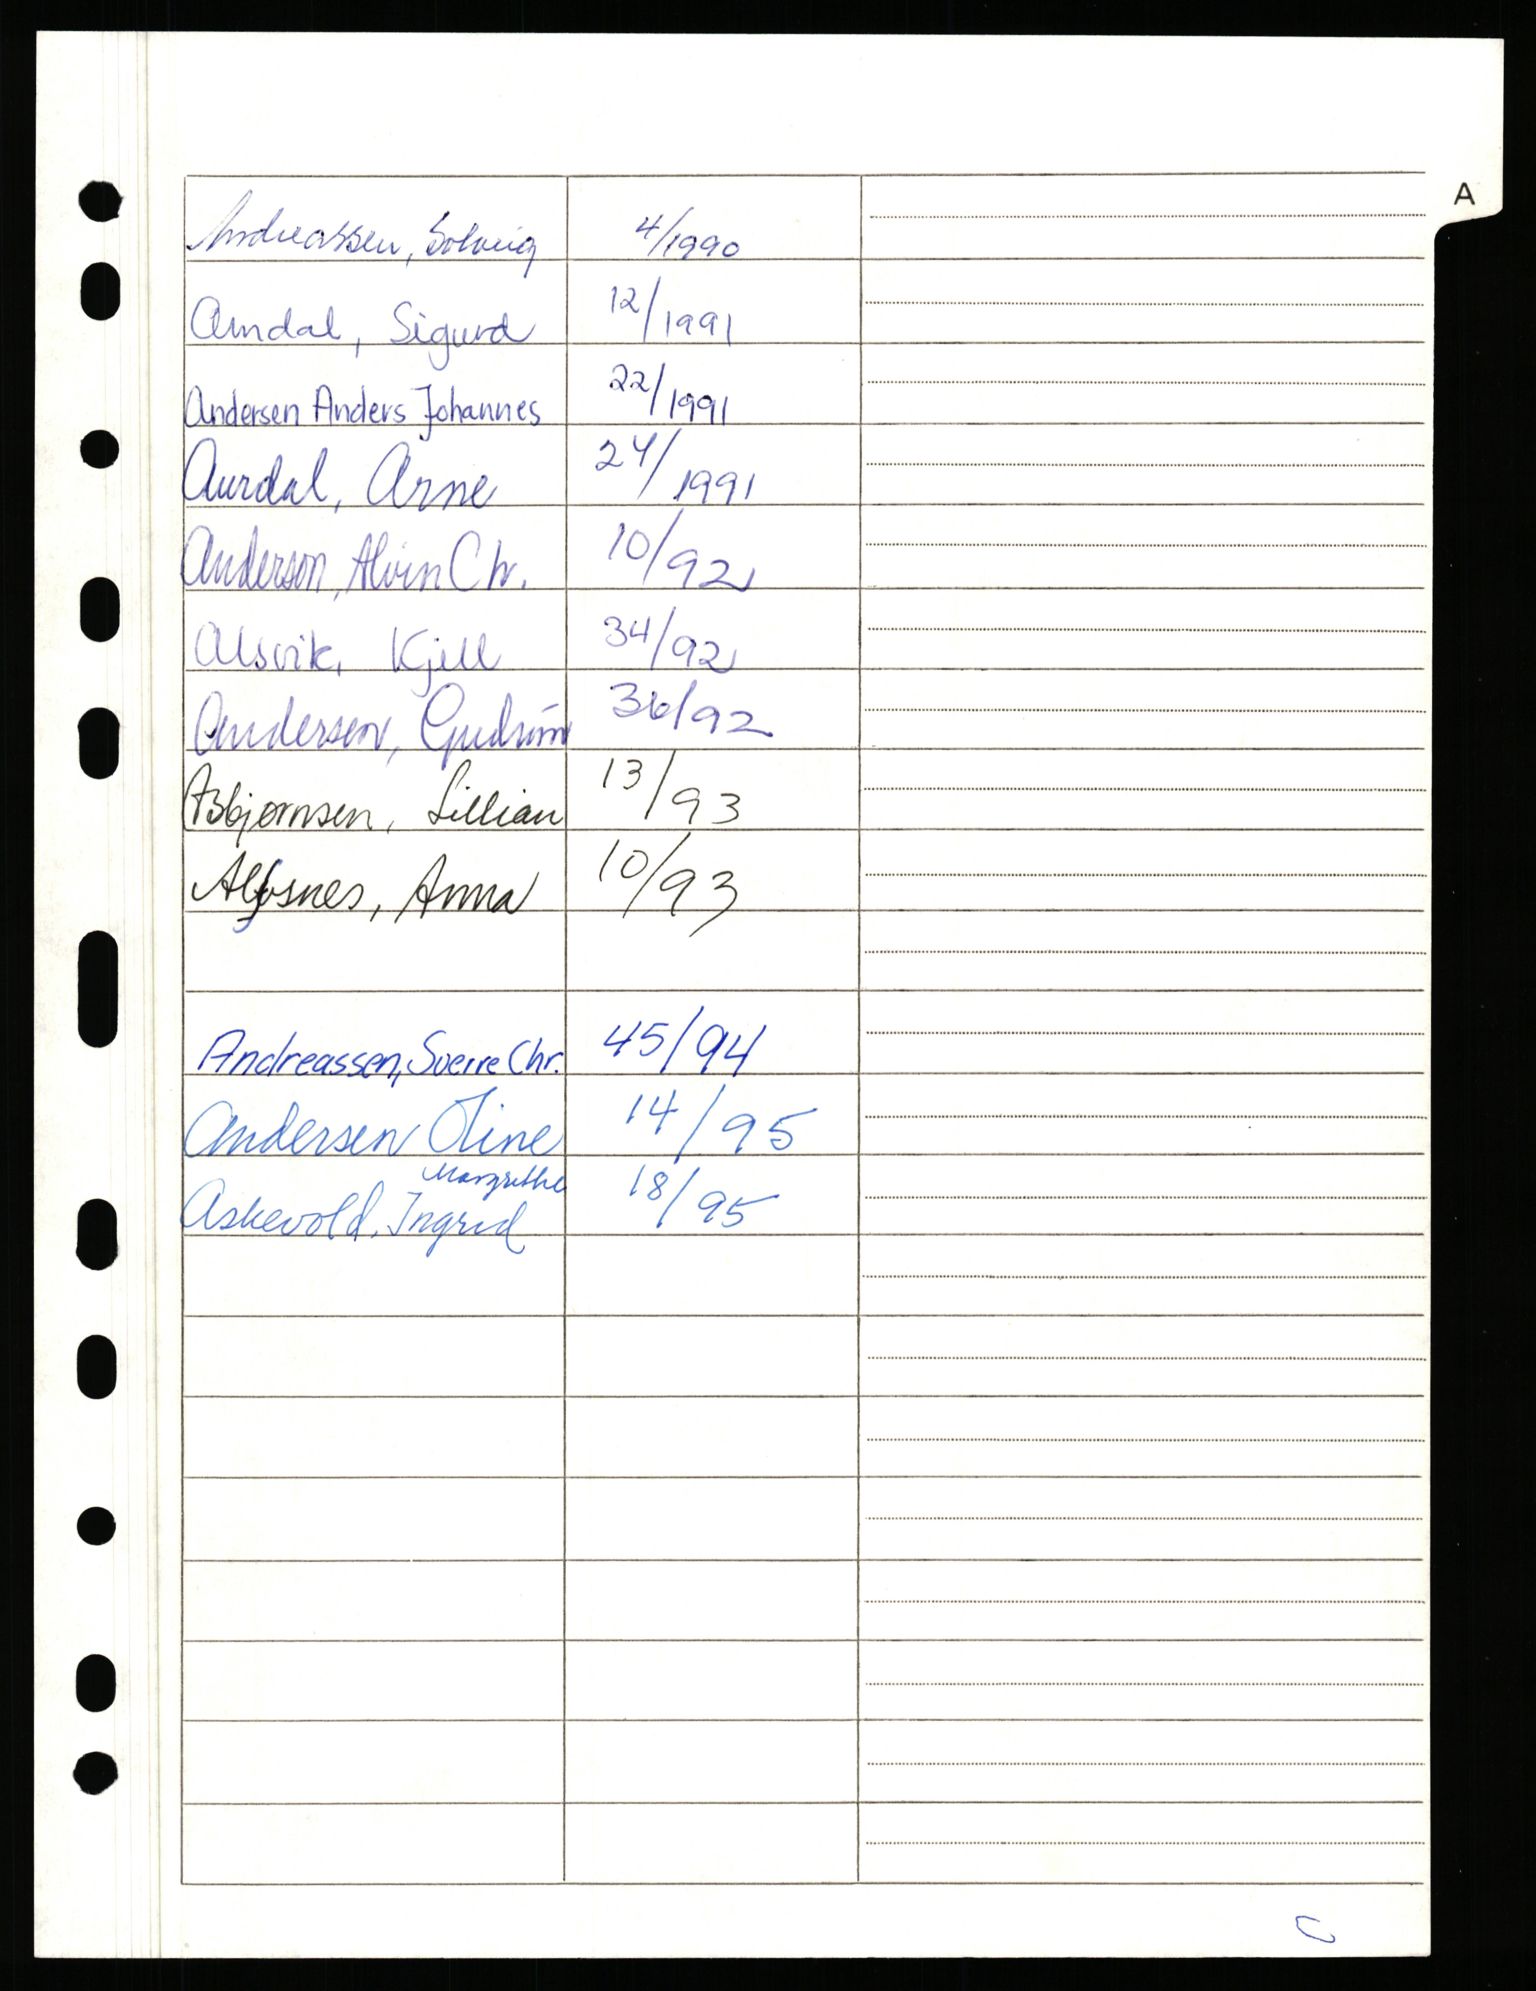 A
Andreassen, Solveig 4/1990
Amdal, Sigurd 12/1991
Andersen Anders Johannes 22/1991
Aurdal, Arne 24/1991
Anderson, Alvin Chr. 10/92
Alsvik, Kjell 34/92
Andersen, Gudrun 36/92
Asbjørnsen, Lillian 13/93
Alfsnes, Anna 10/93
Andreassen, Sverre Chr. 45/94
Andersen Oline 14/95
Margrethe
Askevold, Ingrid 18/95